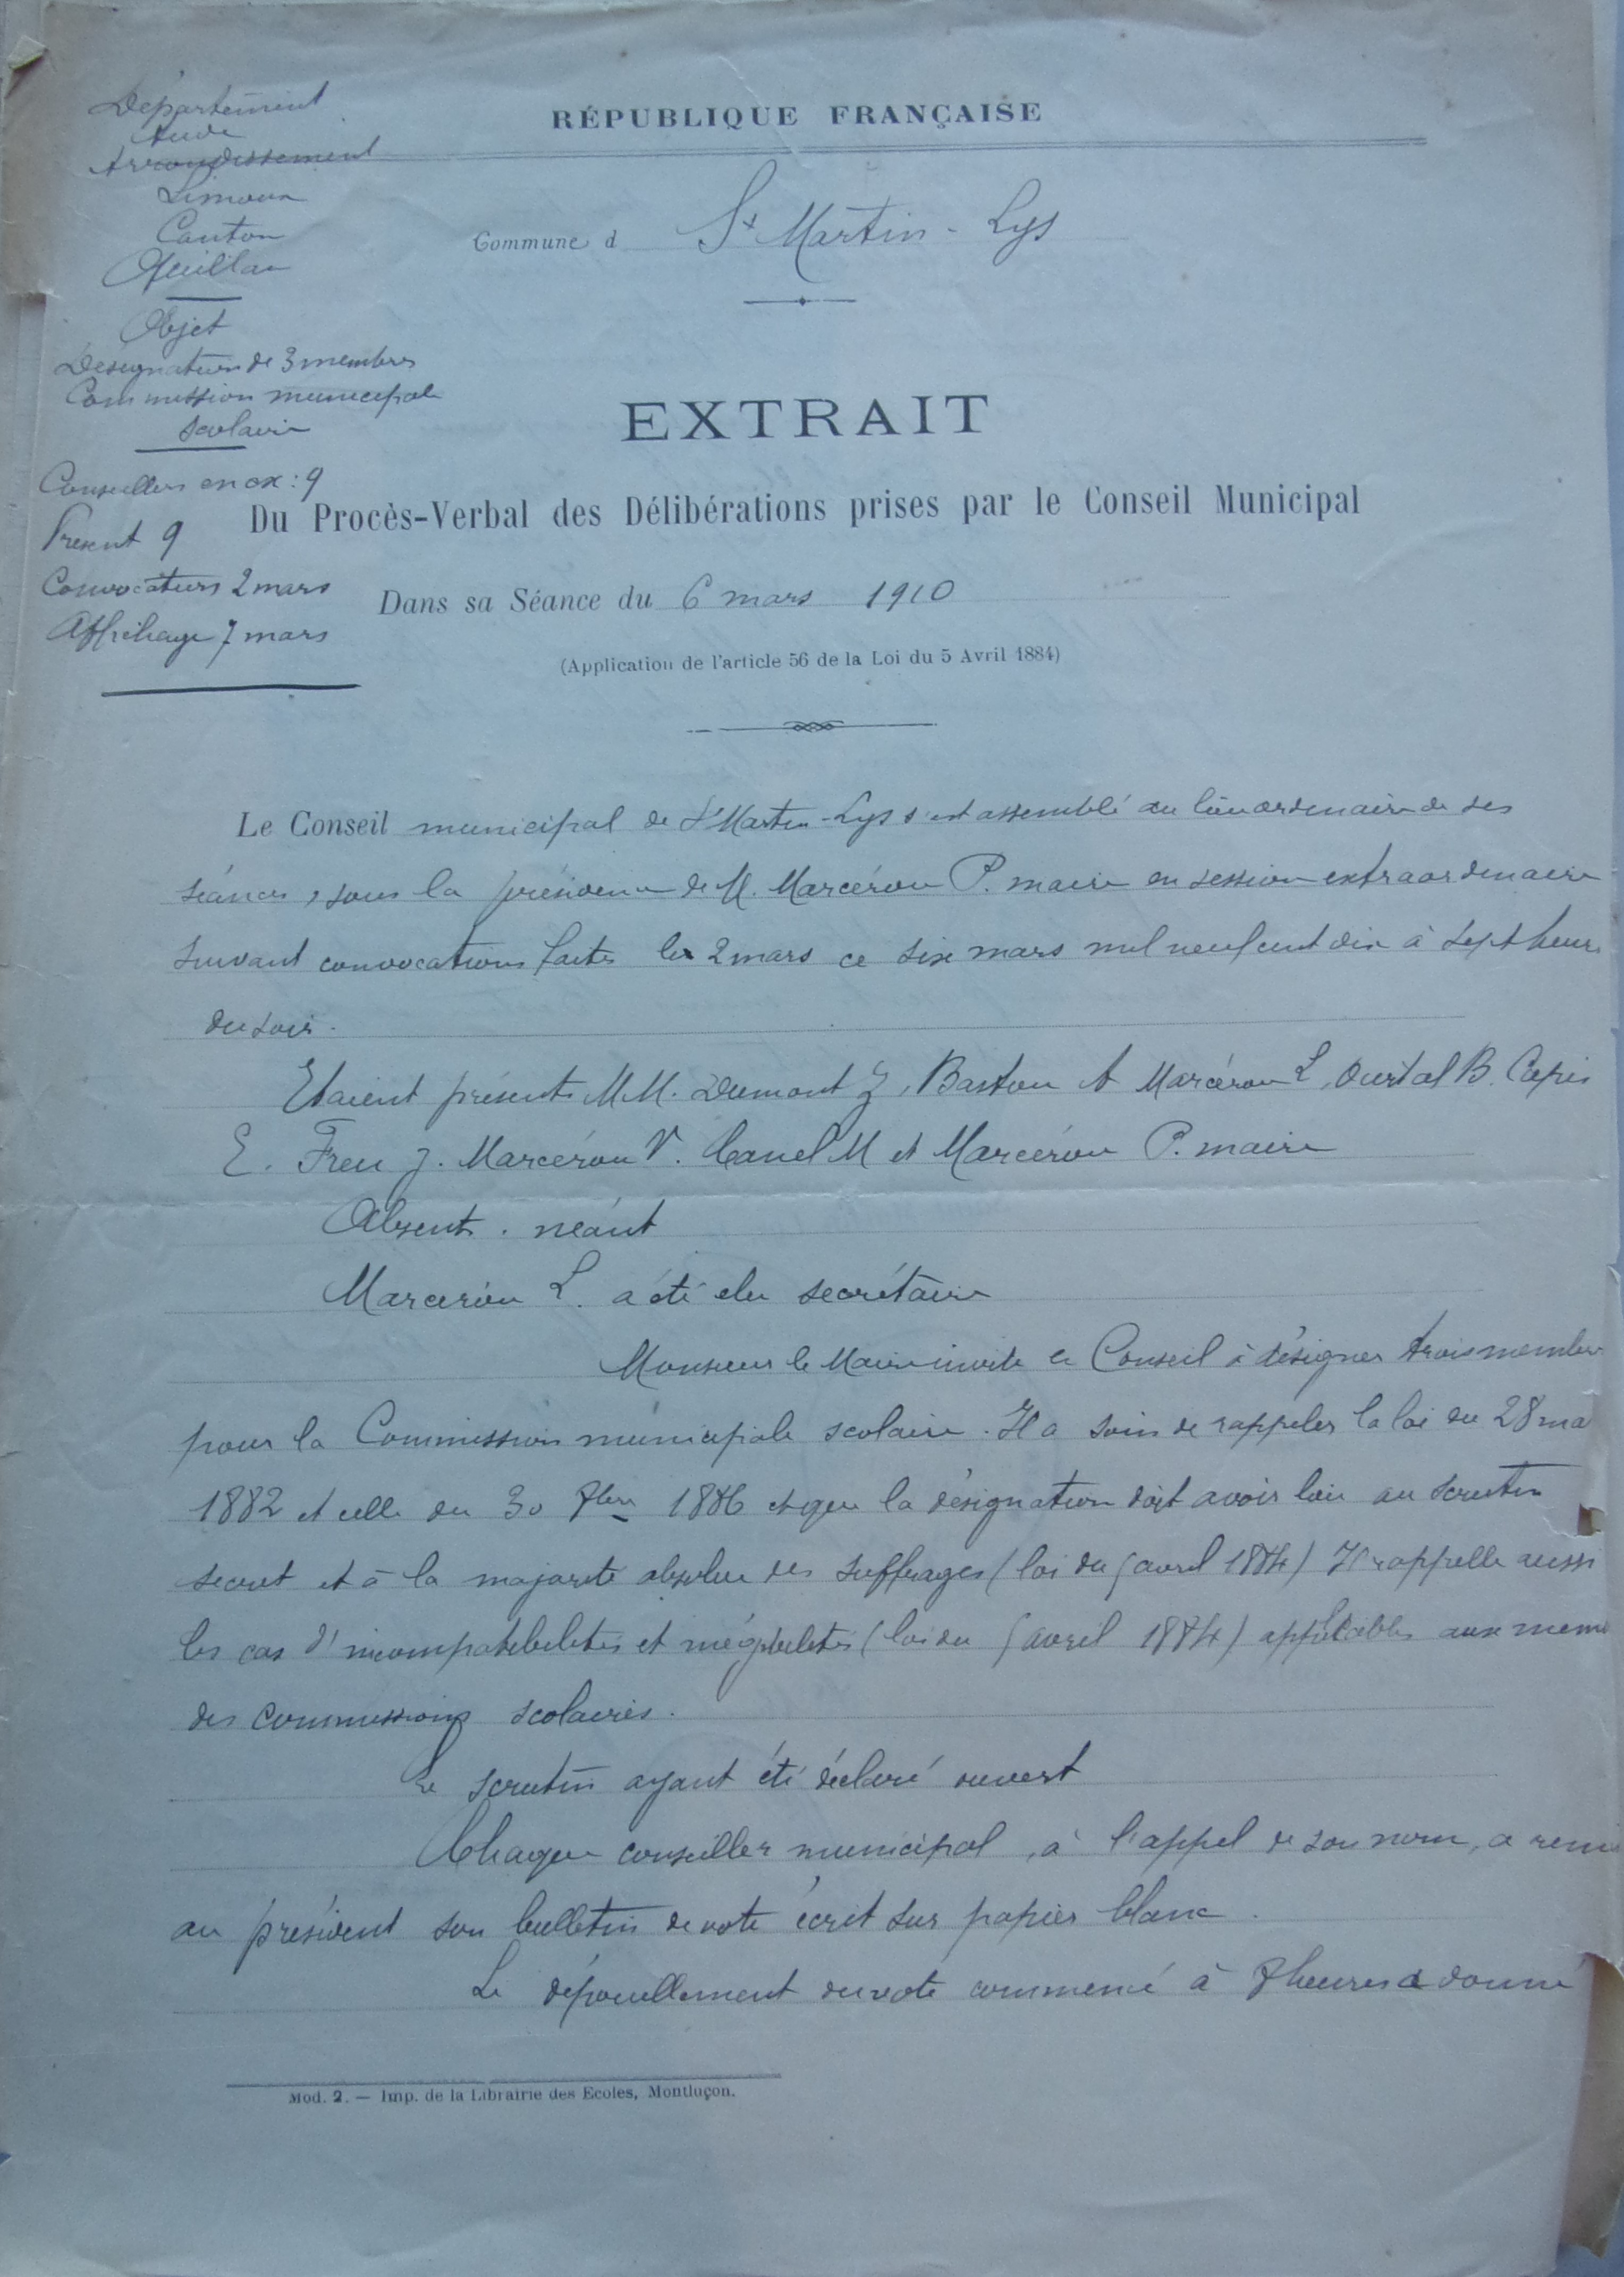 Département
Aude
Arrondissement
Limoux
Canton
Quillan
Objet
Désignation de 3 membres
Commission municipale
scolaire
Conseillers en ex : 9
Présent 9
Convocations 2 mars
Affichage 7 mars
RÉPUBLIQUE FRANÇAISE
Commune d St Martin - Lys
EXTRAIT
Du Procès-Verbal des Délibérations prises par le Conseil Municipal
Dans sa Séance du 6 mars 1910
(Application de l'article 56 de la Loi du 5 Avril 1884)
Le Conseil municipal de St Martin-Lys s'est assemblé au lieu ordinaire de ses
séances, sous la présidence de M. Marcérou P. maire en session extraordinaire
suivant convocations faites le 2 mars ce six mars mil neuf cent dix à sept heures
du soir.
Etaient présents MM. Dumont J, Bastou A Marcérou L, Ourtal B. Capis
E. Freu J. Marcérou V. Canel M et Marcérou P. maire
Absent. néant
Marcérou L. a été élu secrétaire
Monsieur le Maire invite le Conseil à désigner trois membres
pour la Commission municipale scolaire. Il a soin de rappeler la loi du 28 ma
1882 et celle du 30 8bre 1886 et que la désignation doit avoir lieu au scrutin
secret et à la majorité absolue des suffrages (loi du 5 avril 1884) Il rappelle aussi
les cas d'incompatibilités et inégibilités (loi du 5 avril 1884) applicables aux mem
des commissions scolaires.
Le scrutin ayant été déclaré ouvert
Chaque conseiller municipal, à l'appel de son nom, a remi
au président son bulletin de vote écrit sur papier blanc.
Le dépouillement du vote commencé à 7 heures a donné
Mod. 2. — Imp. de la Librairie des Ecoles, Montluçon.